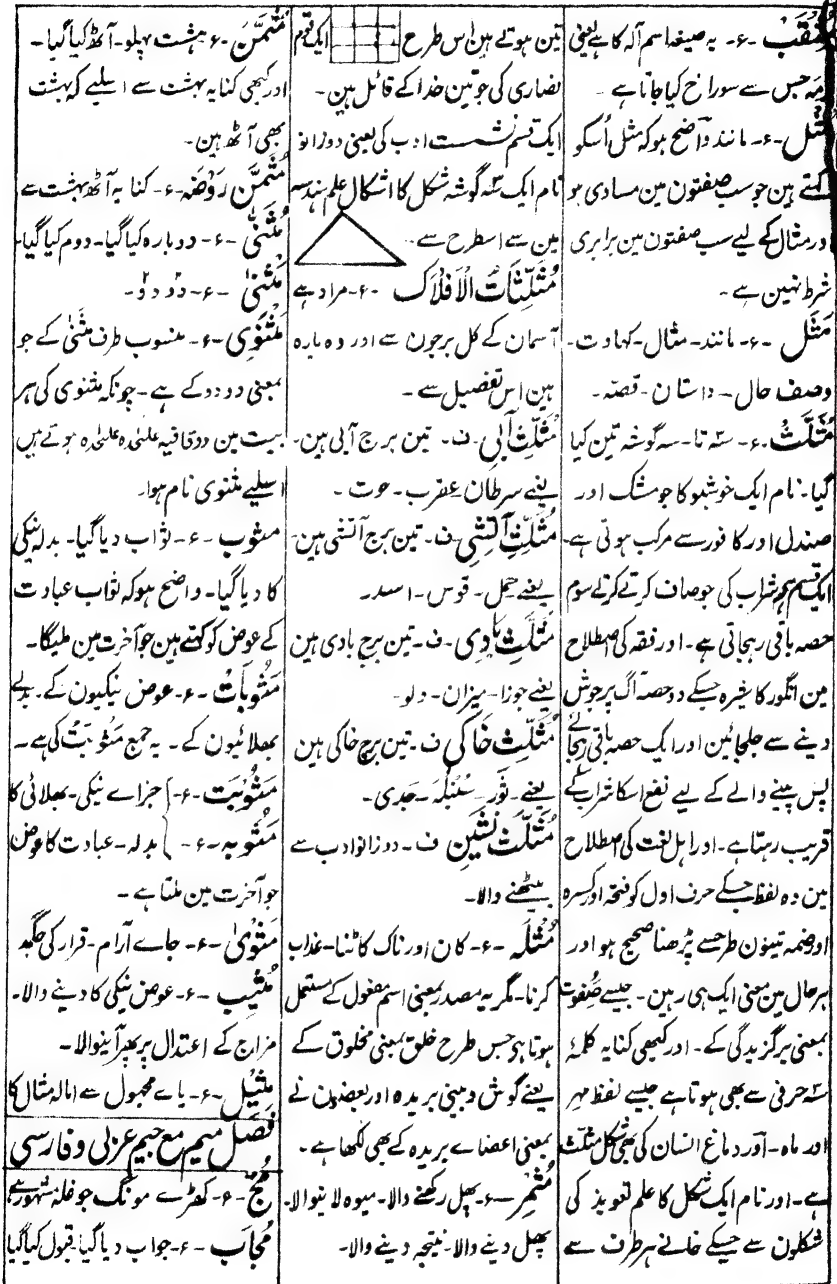 مثقب -ع- یہ صیغہ اسم آلہ کا ہے یعنی
مہ جس سے سوراخ کیا جاتا ہے -
مثل -ع- مانند واضح ہو کہ مثل اُسکو
کہتے ہین جو سب صفتون مین مساوی ہو
اور مثال کے لیے سب صفتون مین برابری
شرط نہین ہے -
مَثَل -ع- مانند - مثال - کہاوت -
وصف حال - داستان - قصّہ -
مُثَلَّث -ع- سہ تا - سہ گوشہ تین کیا
گیا - نام ایک خوشبو کا جو مشک اور
صندل اور کافور سے مرکب ہوتی ہے -
ایک قسم ہے شراب کی جو صاف کرتے کرتے سوم
حصہ باقی رہجاتی ہے - اور فقہ کی اصطلاح
مین انگور کا شیرہ جسکے دو حصہ آگ پر جوش
دینے سے جلجائین اور ایک حصہ باقی رہجائے
پس پینے والے کے لیے نفع اسکا شراب کے
قریب رہتا ہے - اور اہل لغت کی اصطلاح
مین وہ لفظ جسکے حرف اول کو فتحہ اور کسرہ
اور ضمہ تینون طرح سے پڑھنا صحیح ہو اور
ہر حال مین معنی ایک ہی رہین - جیسے صفوت
بمعنی برگزیدگی کے - اور کبھی کنایہ کلمۂ
سہ حرفی سے بھی ہوتا ہے جیسے لفظ مہر
اور ماہ - اور دماغ انسان کی بھی شکل مثلث
ہے - اور نام ایک شکل کا علم تعویذ کی
شکلون سے جسکے خانے ہر طرف سے
تین ہوتے ہین اس طرح ایک قوم
نصاری کی جو تین خدا کے قائل ہین -
ایک قسم نشست ادب کی یعنی دوزانو
نام ایک سہ گوشہ شکل کا اشکال علم ہندسہ
مین سے اسطرح سے -
مُثَلَّثَاتُ الْاَفْلَاک -ع- مراد ہے
آسمان کے کل برجون سے اور وہ بارہ
ہین اس تفصیل سے -
مُثَلَّثِ آبی - ف - تین برج آبی ہین -
یعنے سرطان - عقرب - حوت -
مُثَلَّثِ آتشی - ف - تین برج آتشی ہین -
یعنے حمل - قوس - اسد -
مُثَلَّثِ بَادِی - ف - تین برج بادی ہین
یعنے جوزا - میزان - دلو -
مُثَلَّثِ خَاکی - ف - تین برج خاکی ہین
یعنے - ثور - سنبلہ - جدی -
مُثَلَّث نَشین - ف - دوزانو ادب سے
بیٹھنے والا -
مُثْلَہ -ع- کان اور ناک کاٹنا - عذاب
کرنا - مگر یہ مصدر بمعنی اسم مفعول کے مستعمل
ہوتا ہے جس طرح خلق بمعنی مخلوق کے
یعنے گوش و بینی بریدہ اور بعضون نے
بمعنی اعضاے بریدہ کے بھی لکھا ہے -
مُثْمِر -ع- پھل رکھنے والا - میوہ لانیوالا -
پھل دینے والا - نتیجہ دینے والا -
مُثَمَّن -ع- ہشت پہلو - آٹھ کیا گیا -
اور کبھی کنایہ بہشت سے اسلیے کہ بہشت
بھی آٹھ ہین -
مُثَمَّن رَوْضَہ -ع- کنایہ آٹھ بہشت سے
مُثَنّٰی -ع- دوبارہ کیا گیا - دوم کیا گیا -
مَثْنٰی -ع- دو دو -
مَثْنَوِی -ع- منسوب طرف مثنیٰ کے جو
بمعنی دو دو کے ہے - چونکہ مثنوی کی ہر
بیت مین دو قافیہ علٰحدہ علٰحدہ ہوتے ہین
اسلیے مثنوی نام ہوا -
مثوب -ع- ثواب دیا گیا - بدلہ نیکی
کا دیا گیا - واضح ہو کہ ثواب عبادت
کے عوض کو کہتے ہین جو آخرت مین ملیگا -
مَثُوبَات -ع- عوض نیکیون کے - بدلے
بھلائیون کے - یہ جمع مَثُوبَت کی ہے -
مَثُوبَت -ع- } جزاے نیکی - بھلائی کا
مَثُوبہ -ع- } بدلہ - عبادت کا عوض
جو آخرت مین ملتا ہے -
مَثْوٰی -ع- جاے آرام - قرار کی جگہ
مُثیب -ع- عوض نیکی کا دینے والا -
مزاج کے اعتدال پر پھر آنیوالا -
مِثیل -ع- یاے مجہول سے امالہ مثال کا
فصل میم مع جیم عربی و فارسی
مُج -ع- کھڑے مونگ جو غلہ مشہور ہے
مُجَاب -ع- جواب دیا گیا - قبول کیا گیا